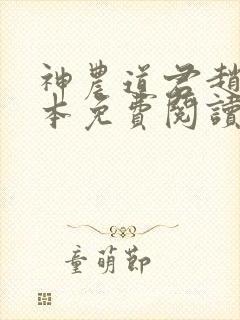 神農道君趙
本免費閱讀
童萌節